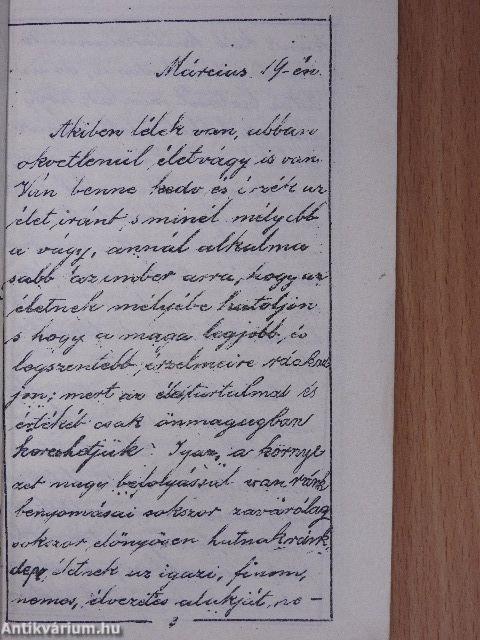 Március 19-én.
Akiben lélek van, abban
okvetlenül életvágy is van.
Van benne kedv és érzék az
élet iránt, s minél mélyebb
a vagy, annál alkalma
sabb az ember arra, hogy az
életnek mélyébe hatoljon
s hogy a maga legjobb és
legszentebb érzelmeire ráakad
jon; mert az élet tartalmát és
értékét csak önmagugban
kereshetjük. Igaz, a környe
zet nagy befolyással van ránk
benyomásai sokszor zavarólag
sokszor előnyösen hatnak ránk
de életnek az igazi, finom,
nemes, élvezetes alakját, ne-
3
Antikvárium.hu